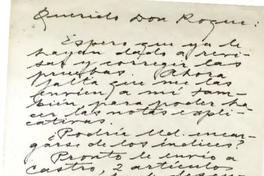 Querido Don Roque:
Espero que ya le
hayan dado a revi-
sar y corregir las
pruebas. Ahora
falta que me las
envíen a mí tam-
bién, para poder ha-
cer las notas expli-
cativas.
¿Podría Ud. encar-
garse de los índices?
Pronto le envío a
Castro, 2 artículos